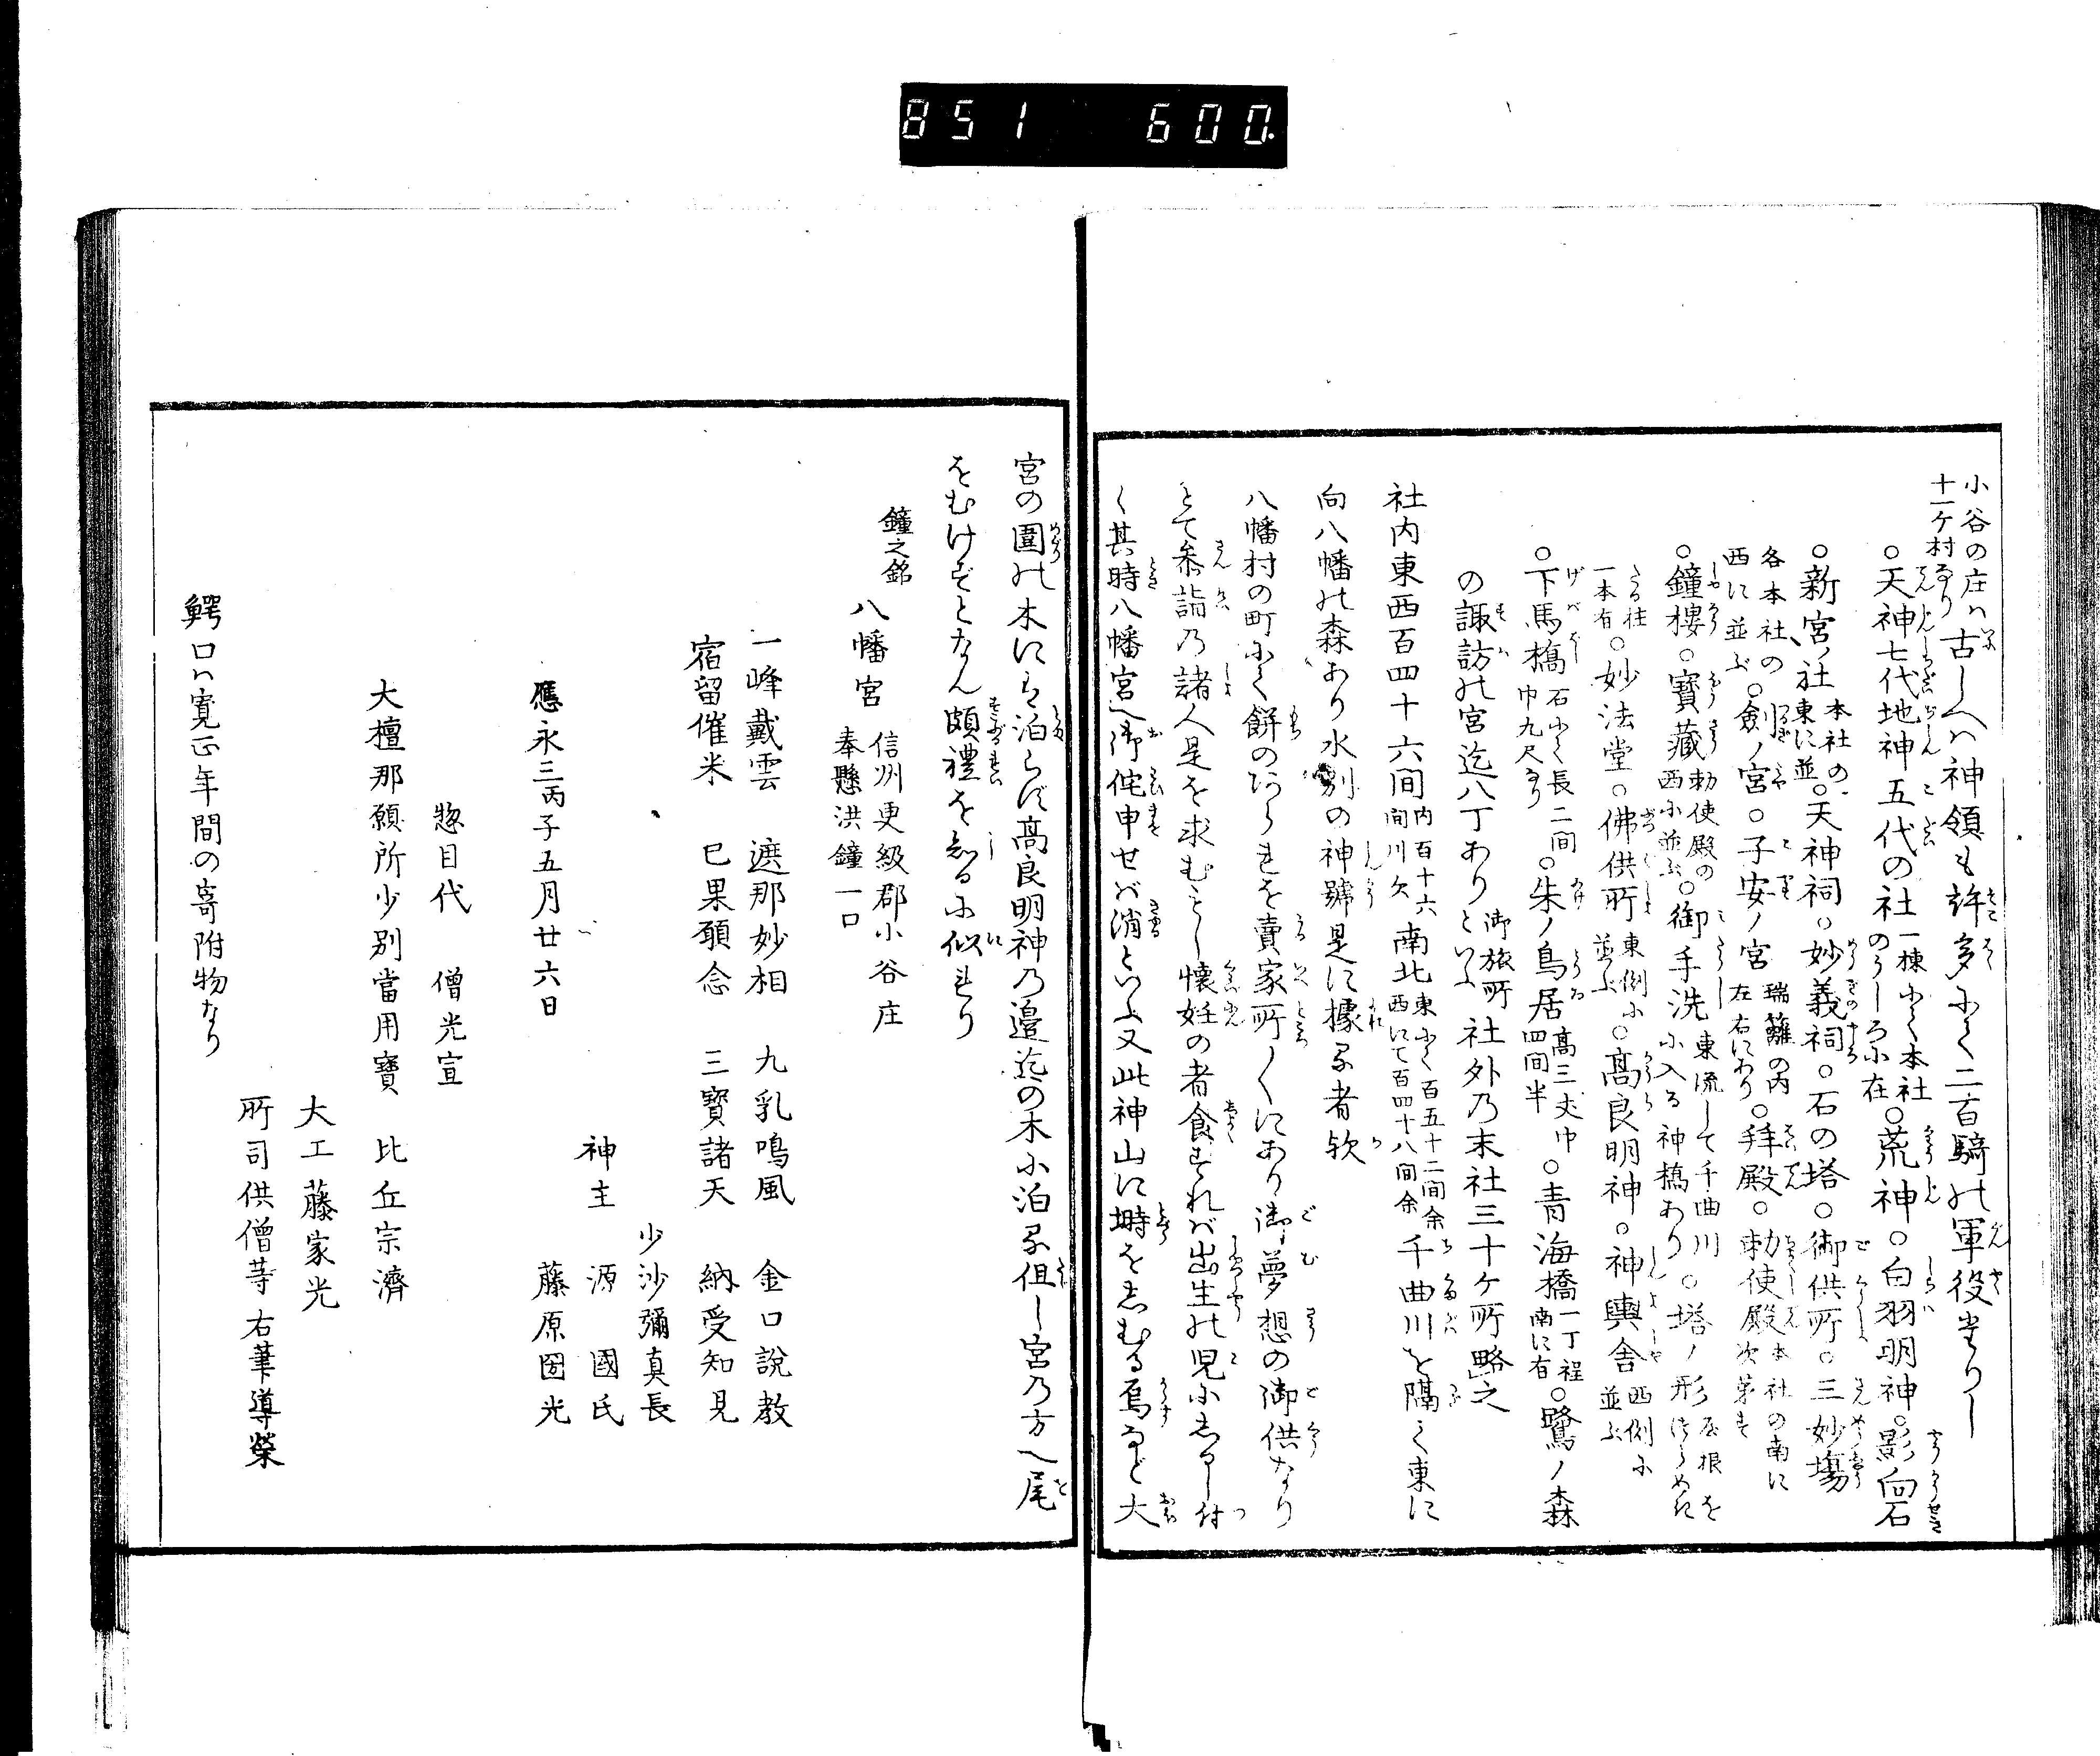 851 600.
小谷の庄ハ
十一ケ村なり
古しへハ神領も許多にて二百騎の軍役ありし
○天神七代地神五代の社
一棟にて本社
のうしろに在
○荒神○白羽明神○影向石
○新宮ノ社
本社の
東に並
○天神祠○妙義祠○石の塔○御供所○三妙場
各本社の
西に並ぶ
○劔ノ宮○子安ノ宮
瑞籬の内
左右にあり
○拜殿○勅使殿
本社の南に
次第す
○鐘樓○寶藏
勅使殿の
西に並ぶ
○御手洗
東流して千曲川
に入る神橋あり
○塔ノ形
屋根を
たる柱
一本有
○妙法堂○佛供所
東側に
並ぶ
○高良明神○神輿舎
西側に
並ぶ
○下馬橋
石にて長二間
巾九尺あり
○朱ノ鳥居
高三丈巾
四間半
○青海橋
一丁程
南に有
○鷺ノ森
の諏訪の宮迄八丁ありといふ
御旅所
社外乃末社三十ケ所略之
社内東西百四十六間
内百十六
間川欠
南北
東にて百五十二間余
西にて百四十八間余
千曲川を隔て東に
向八幡の森あり水別の神號是に據る者欤
八幡村の町にて餅のあられを賣家所〱にあり御夢想の御供なり
とて参詣乃諸人是を求むもし懐妊の者食すれバ出生の児にしるし付
く其時八幡宮へ御侘申せバ消といふ又此神山に塒をしむる烏など大
宮の圍の木にハ泊らず高良明神乃邉迄の木に泊る但し宮乃方へ尾
をむけずとなん頗禮を知るに似たり
鐘之銘
八幡宮
信州更級郡小谷庄
奉懸洪鐘一口
一峰戴雲 遮那妙相 九乳鳴風 金口説教
宿留催米 已果願念 三寶諸天 納受知見
少沙彌真長
神主 源國氏
藤原国光
應永三丙子五月廿六日
惣目代 僧光宣
大檀那願所少別當用寶 比丘宗濟
大工藤家光
所司供僧等 右筆導榮
鰐口ハ寛正年間の寄附物なり